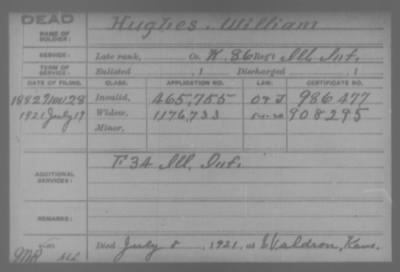 DEAD
NAME OF SOLDIER: Hughes, William
SERVICE: Late rank, Co. K, 86 Reg't Ill. Inf.
TERM OF SERVICE: Enlisted , 1 Discharged , 1
DATE OF FILING. CLASS. APPLICATION NO. LAW. CERTIFICATE NO.
1882 Nov 28 Invalid, 465,755 986477
1921 July 19 Widow, 1176,733 908295
Minor,
ADDITIONAL SERVICES: F 34 Ill. Inf.
REMARKS:
Died July 8, 1921, at Waldron, Kans.